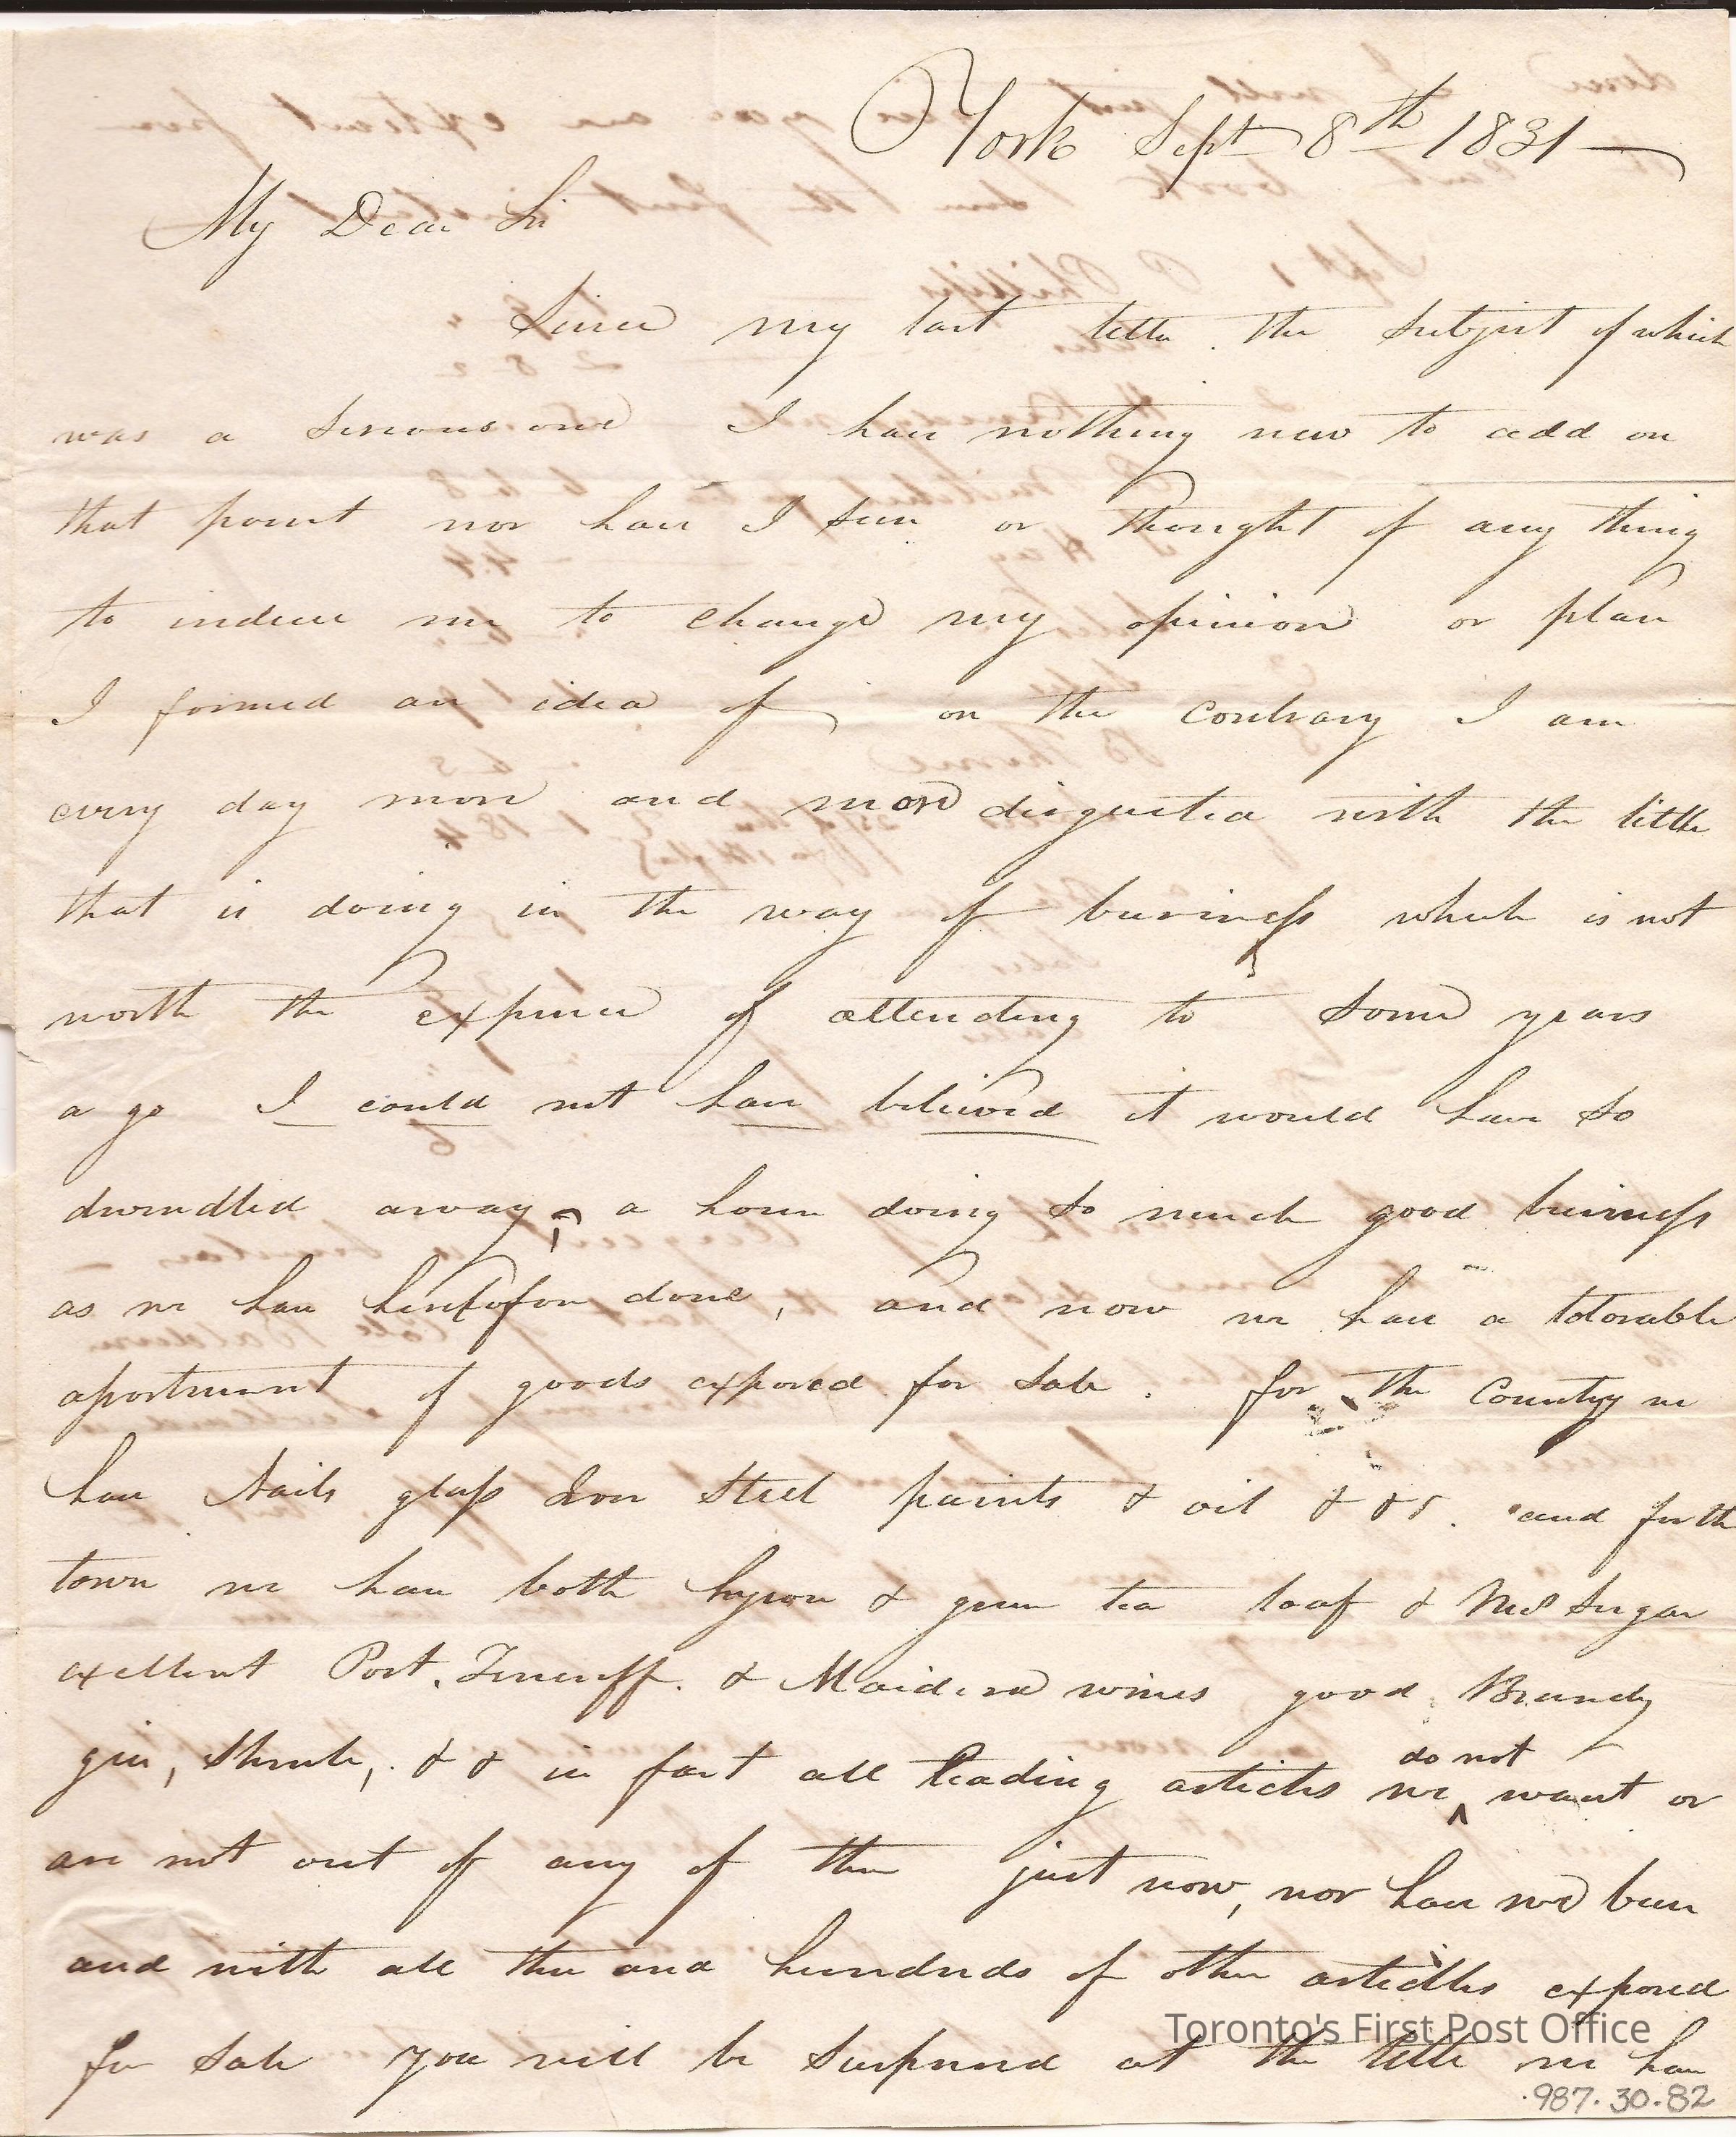 York Sept 8th 1831
My Dear Sir
Since my last letter the subject of which
was a serious one I have nothing new to add on
that point nor have I seen or thought of any thing
to induce me to change my opinion or plan
I formed an idea of, on the contrary I am
every day more and more disgusted with the little
that is doing in the way of business which is not
worth the expense of attending to some years
a go I could not have believed it would have so
dwindled away, a house doing so much good business
as we have heretofore done, and now we have a tolorable
assortment of goods exposed for sale. for the Country we
have Nails glass Iron Steel paints & oil & &c. and for the
town we have both hyson & green tea loaf & Mus Sugar
exellent Port, Teneriff. & Maideira wines good Brandy
gin, Shrub, & & in fact all leading articles we do not want or
are not out of any of them just now, nor have we been
and with all these and hundreds of other articles exposed
for sale you will be surprised at the little we have
Toronto's First Post Office
.987.30.82